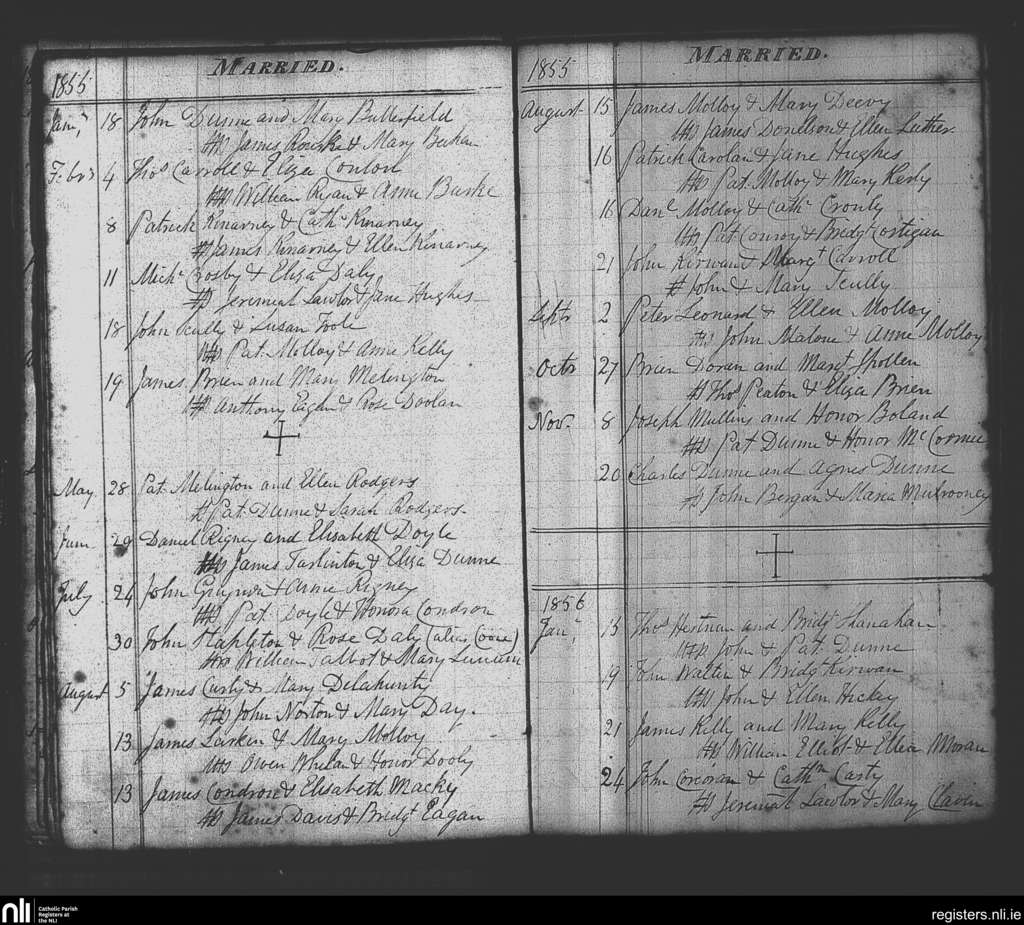 MARRIED.
1855
Jany 18 John Dunne and Mary Butterfield
James Rourke & Mary
Febry 4 Thos Carroll & Eliza Conlon
William Ryan & Anne Burke
8 Patrick Kinarney & Cathe Kinarney
James Kinarney & Ellen Kinarney
11 Michl Crosby & Eliza Daly
Jeremiah Lawlor & Jane Hughes
18 John Scully & Susan Toole
Pat Molloy & Anne Kelly
19 James Brien and Mary Melington
Anthony & Rose Doolan
May 28 Pat Melington and Ellen Rodgers
Pat Dunne & Sarah Rodgers
June 29 Daniel Rigney and Elisabeth Doyle
James Tarlinton & Eliza Dunne
July 24 John & Anne Rigney
Pat Doyle & Honora Condron
30 John Stapleton & Rose Daly (alias)
William Talbot & Mary
August 5 James & Mary Delahunty
John Norton & Mary Day.
13 James Larken & Mary Molloy
Owen Whelan & Honor Dooly
13 James Condron & Elisabeth Macky
James Davis & Bridgt Eagan
MARRIED.
1855
August 15 James Molloy & Mary Deevy
James Donelson & Ellen Luther
16 Patrick Carolan & Jane Hughes
Pat. Molloy & Mary
16 Danl Molloy & Cathe
Pat Conroy & Bridgt Costigan
21 John Kirwan & Margt Carroll
John & Mary Scully
Septr 2 Peter Leonard & Ellen Molloy
John Malone & Anne Molloy
Octr 27 Brien Doran and Margt Spollen
Thos Peaton & Eliza Brien
Nov. 8 Joseph Mullins and Honor Boland
Pat Dunne & Honor
20 Charles Dunne and Agnes Dunne
John Bergan & Maria Mulrooney
1856
Jany 15 Thos and Bridgt Shanahan
John & Pat Dunne
19 John Walter & Bridgt Kirwan
John & Ellen Hickey
21 James Kelly and Mary Kelly
William Elliot & Ellen Moran
24 John Corcoran & Cathne Casty
Jeremiah Lawlor & Mary Clavin
nli
Catholic Parish
Registers at
the NLI
registers.nli.ie